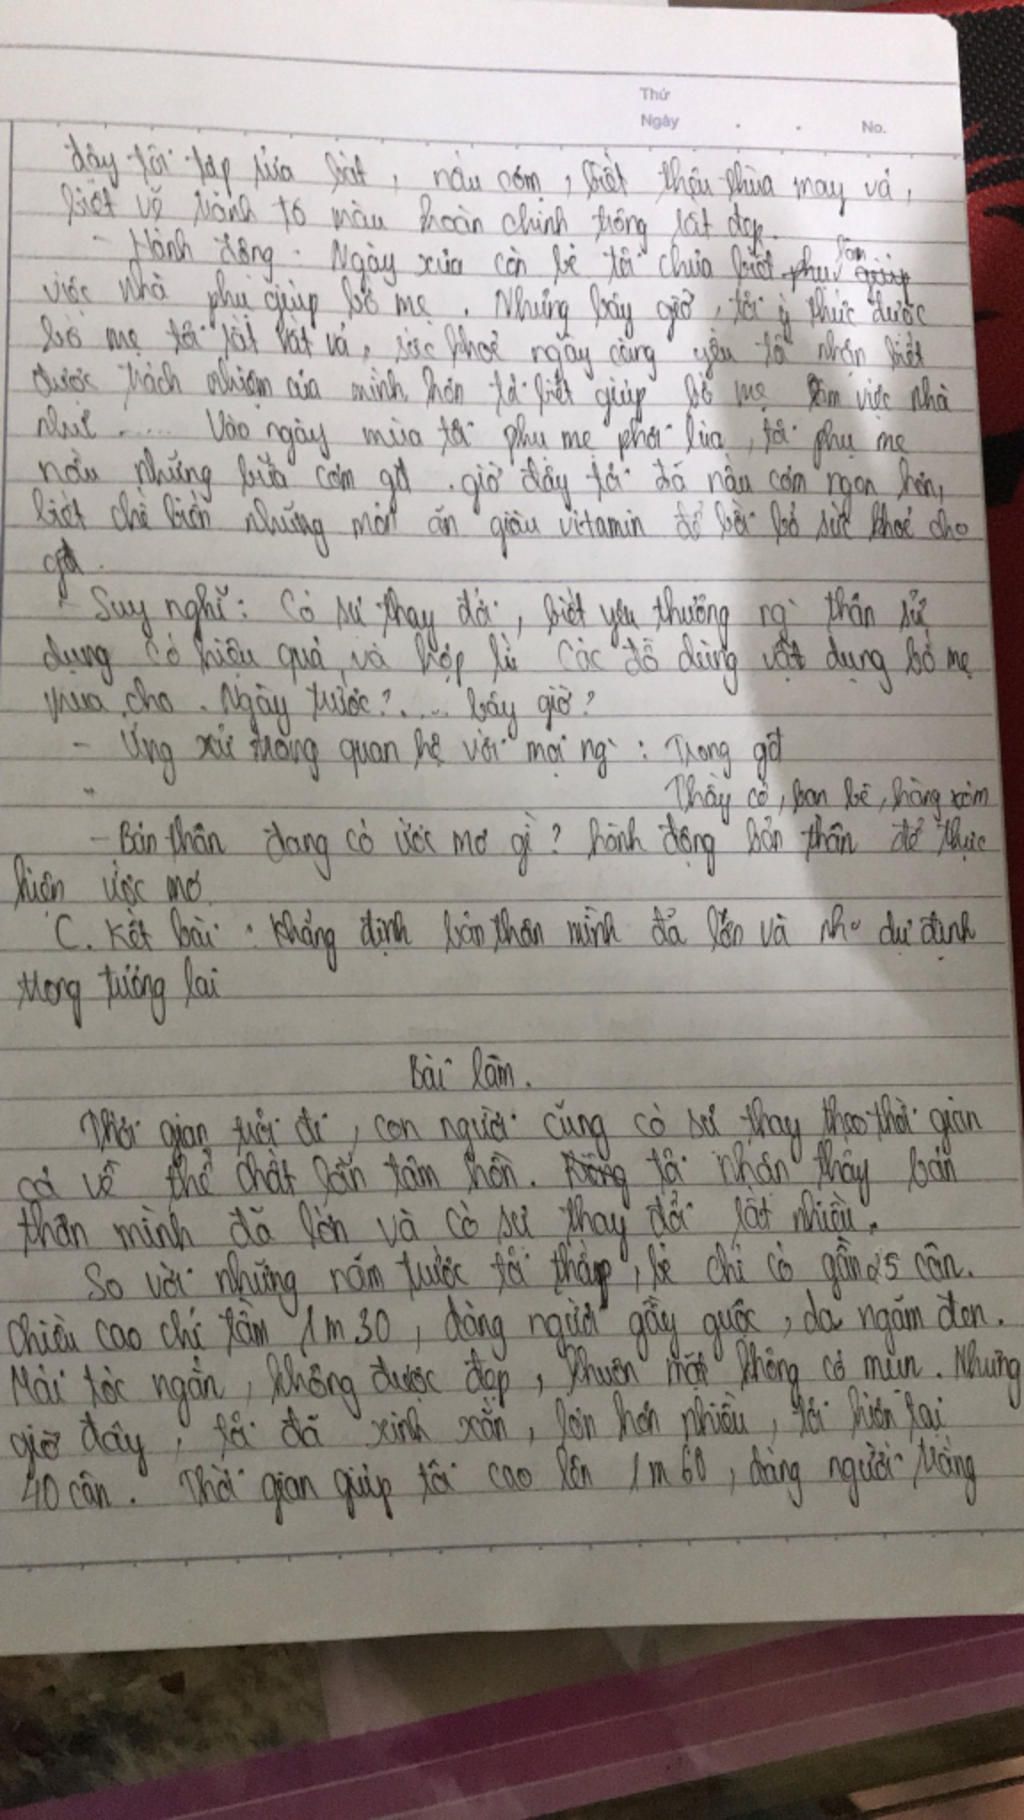 Thứ
Ngày . . No.
đây tôi tập rửa bát, nấu cơm, biết thêu thùa may vá,
biết vẽ tranh tô màu hoàn chỉnh trông rất đẹp.
- Hành động. Ngày xưa còn bé tôi chưa biết phụ giúp làm
việc nhà phụ giúp bố mẹ. Nhưng bây giờ, tôi ý thức được
bố mẹ tôi rất vất vả, sức khoẻ ngày càng yếu tôi nhận biết
được trách nhiệm của mình hơn tôi biết giúp bố mẹ làm việc nhà
như ..... Vào ngày mùa tôi phụ mẹ phơi lúa, tôi phụ mẹ
nấu những bữa cơm gđ. giờ đây tôi đã nấu cơm ngon hơn,
biết chế biến những món ăn giàu vitamin để bồi bổ sức khoẻ cho
gđ.
- Suy nghĩ: Có sự thay đổi, biết yêu thương ng` thân sử
dụng có hiệu quả và hợp lí các đồ dùng vật dụng bố mẹ
mua cho. Ngày trước?.... bây giờ?
- Ứng xử trong quan hệ với mọi ng`: Trong gđ
Thầy cô, bạn bè, hàng xóm
- Bản thân đang có ước mơ gì? hành động bản thân để thực
hiện ước mơ
C. Kết bài: Khẳng định bản thân mình đã lớn và dự định
trong tương lai
Bài làm.
Thời gian trôi đi, con người cũng có sự thay theo thời gian
cả về thể chất lẫn tâm hồn. tôi nhận thấy bản
thân mình đã lớn và có sự thay đổi rất nhiều.
So với những năm trước tôi thấp, bé chỉ có gần 25 cân.
Chiều cao chỉ tầm 1m30, dáng người gầy guộc, da ngăm đen.
Mái tóc ngắn, không được đẹp, khuôn mặt không có mụn. Nhưng
giờ đây, tôi đã xinh xắn, lớn hơn nhiều, tôi hiện tại
40 cân. Thời gian giúp tôi cao lên 1m60, dáng người